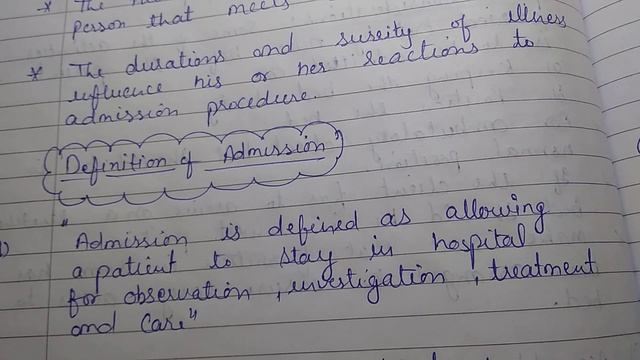 * The
person that meets
* The durations and sureity of illness
influence his or her reactions to
admission procedure.
Definition of Admission
"Admission is defined as allowing
a patient to stay in hospital
for observation, investigation, treatment
and care"